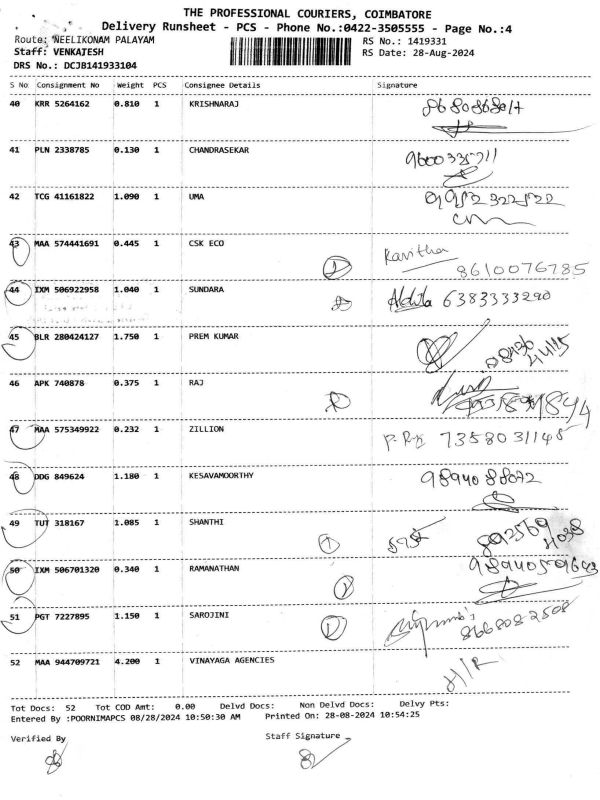 THE PROFESSIONAL COURIERS, COIMBATORE
Delivery Runsheet - PCS - Phone No.:0422-3505555 - Page No.:4
Route: NEELIKONAM PALAYAM RS No.: 1419331
Staff: VENKATESH RS Date: 28-Aug-2024
DRS No.: DCJB141933104
S No Consignment No Weight PCS Consignee Details Signature
40 KRR 5264162 0.810 1 KRISHNARAJ
41 PLN 2338785 0.130 1 CHANDRASEKAR
42 TCG 41161822 1.090 1 UMA
43 MAA 574441691 0.445 1 CSK ECO Kavitha
8610076785
44 IXM 506922958 1.040 1 SUNDARA 6383333290
45 BLR 280424127 1.750 1 PREM KUMAR
46 APK 740878 0.375 1 RAJ
47 MAA 575349922 0.232 1 ZILLION 7358031148
48 DDG 849624 1.180 1 KESAVAMOORTHY 9894088072
49 TUT 318167 1.085 1 SHANTHI
50 IXM 506701320 0.340 1 RAMANATHAN
51 PGT 7227895 1.150 1 SAROJINI
52 MAA 944709721 4.200 1 VINAYAGA AGENCIES H/R
Tot Docs: 52 Tot COD Amt: 0.00 Delvd Docs: Non Delvd Docs: Delvy Pts:
Entered By :POORNIMAPCS 08/28/2024 10:50:30 AM Printed On: 28-08-2024 10:54:25
Verified By Staff Signature